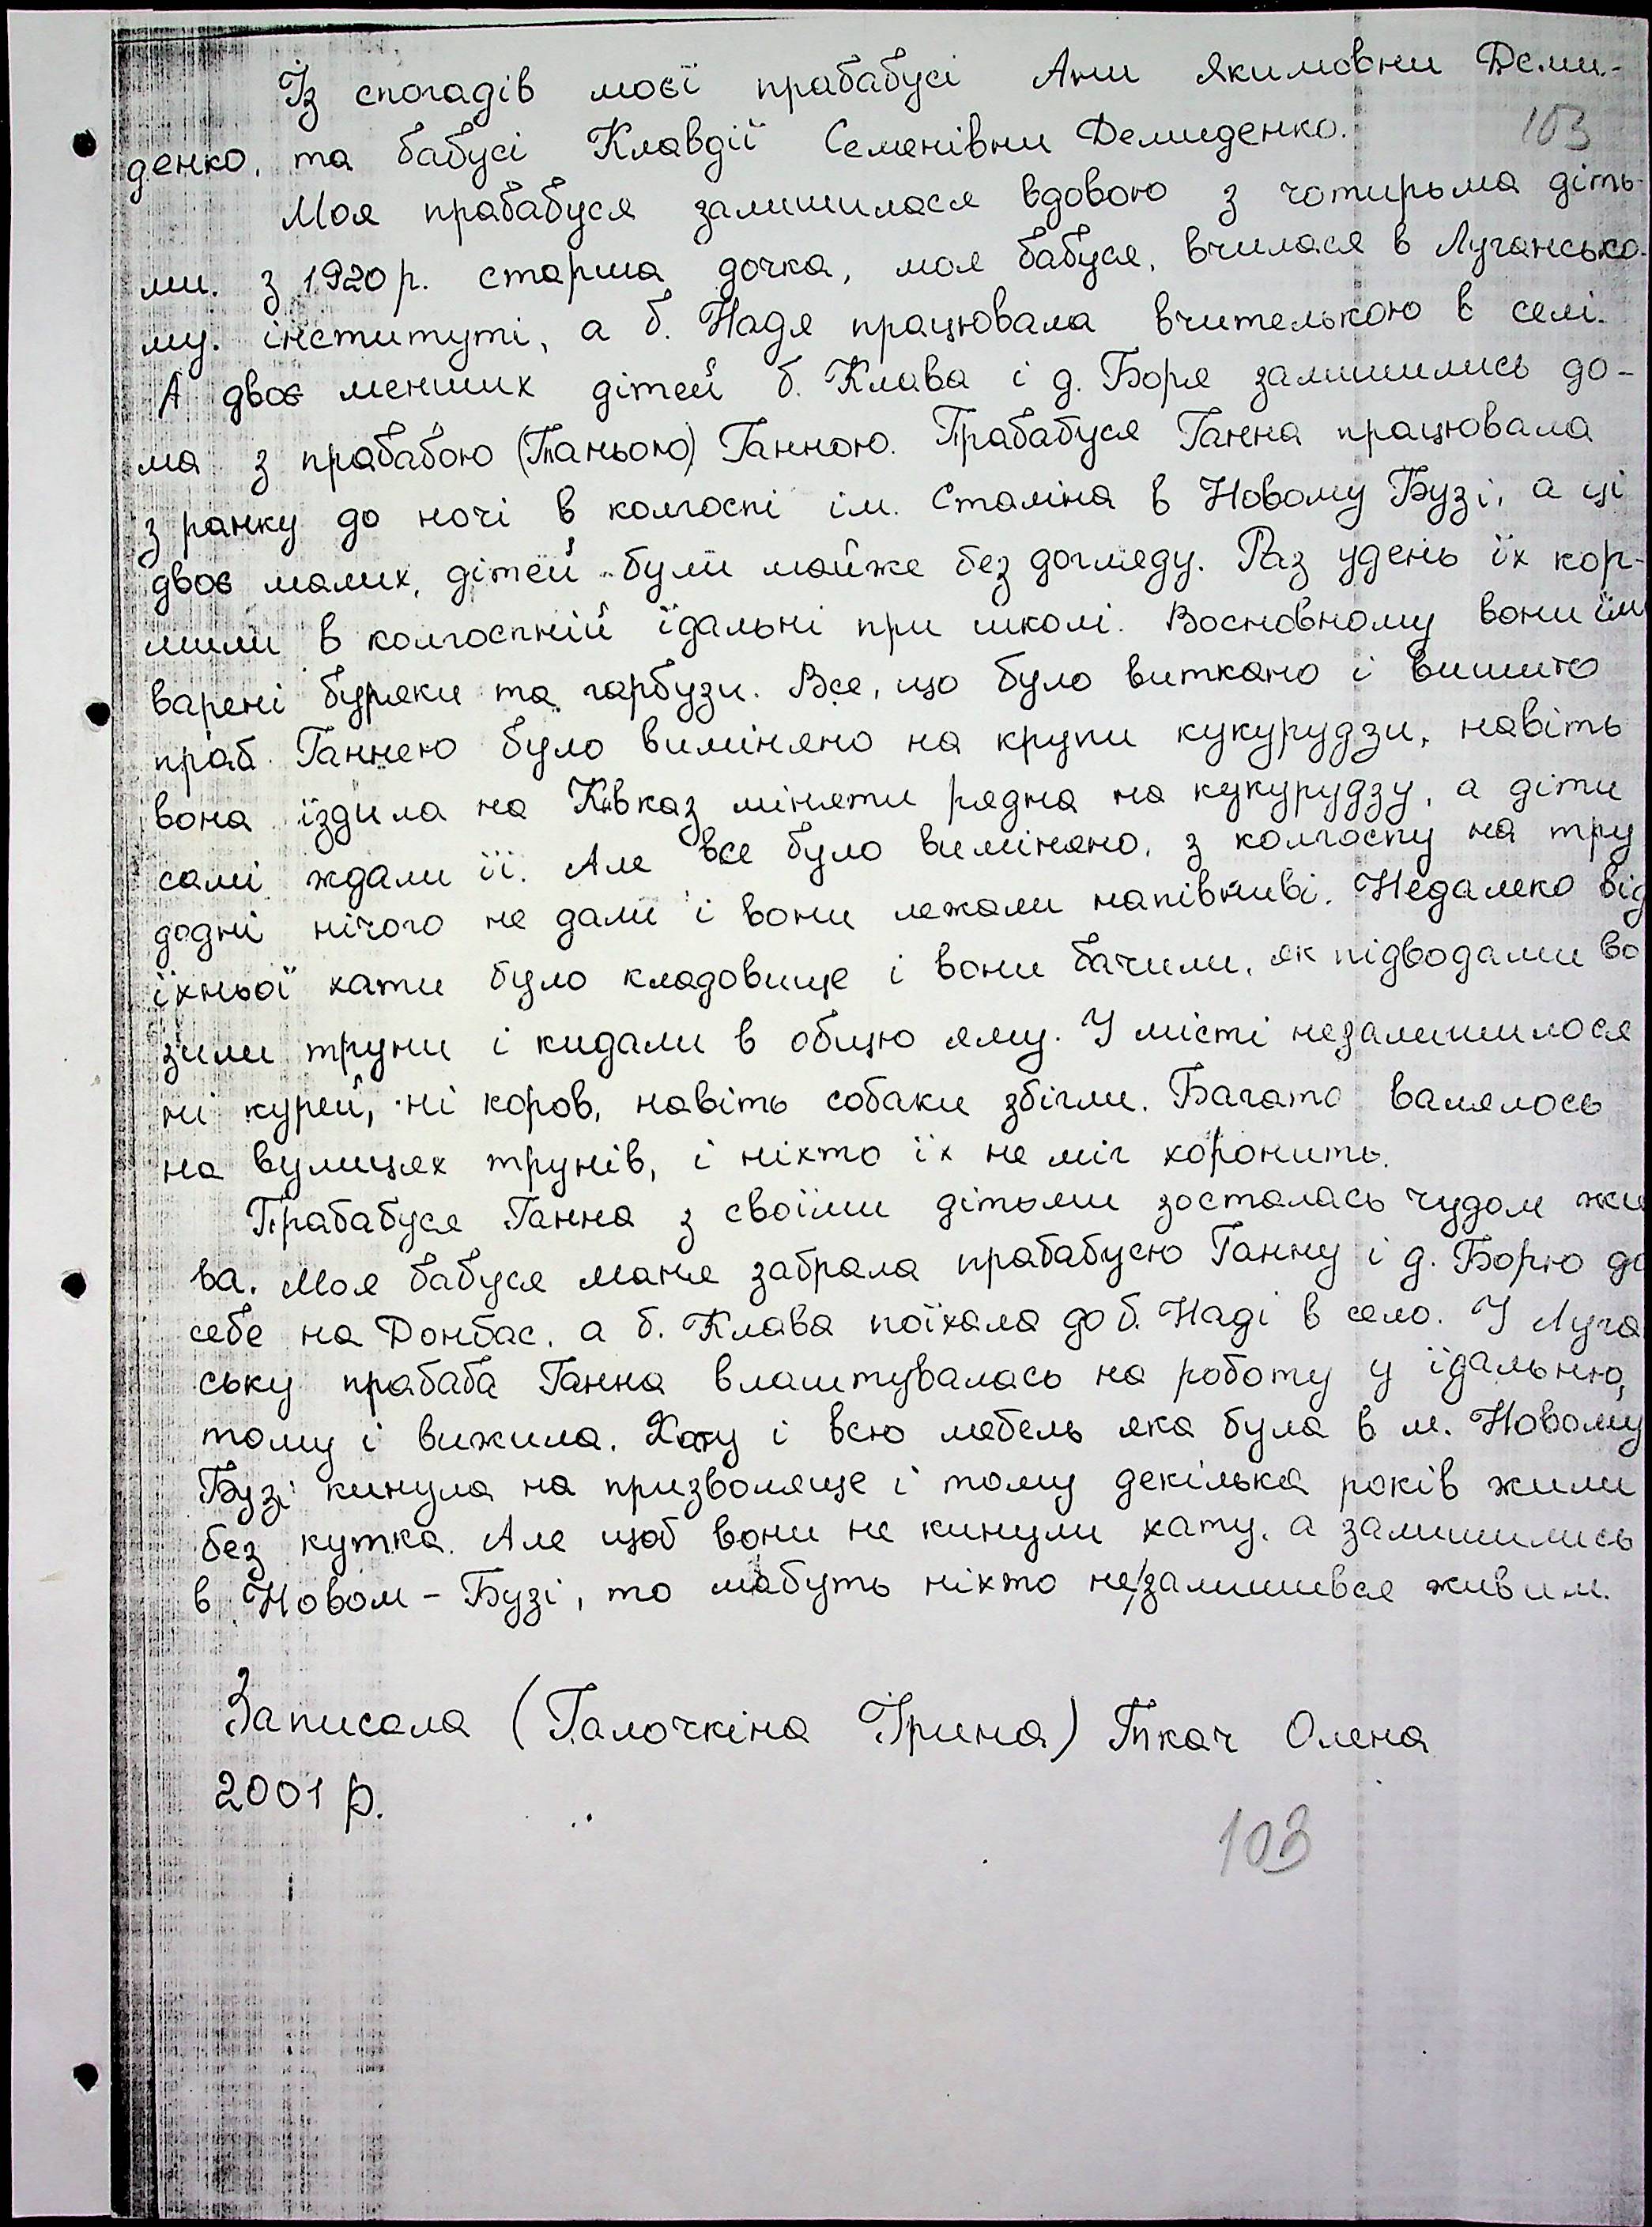 Із спогадів моєї прабабусі Ани Якимовни Деми-
103
денко, та бабусі Клавдії Семенівни Демиденко.
Моя прабабуся залишилася вдовою з чотирьма діть-
ми. з 1920 р. старша дочка, моя бабуся, вчилася в Лугансько-
му. інституті, а б. Надя працювала вчителькою в селі.
А двоє менших дітей б. Клава і д. Боря залишились до-
ма з прабабою (Таньою) Ганною. Прабабуся Ганна працювала
з ранку до ночі в колгоспі ім. Сталіна в Новому Бузі, а ці
двоє малих, дітей були майже без догляду. Раз удень їх кор-
мили в колгоспній їдальні при школі. Восновному вони їли
варені буряки та гарбузи. Все, що було виткано і вишито
праб. Ганнею було виміняно на крупи кукурудзи, навіть
вона їздила на Кавказ міняти рядна на кукурудзу, а діти
самі ждали її. Але все було виміняно, з колгоспу на тру
додні нічого не дали і вони лежали напівживі. Недалеко від
їхньої хати було кладовище і вони бачили, як підводами во
зили труни і кидали в общю яму. У місті незалишилося
ні курей, ні коров, навіть собаки збігли. Багато валялось
на вулицях трунів, і ніхто їх не міг хоронить.
Прабабуся Ганна з своїми дітьми зосталась чудом жи
ва. Моя бабуся маня забрала прабабусю Ганну і д. Борю до
себе на Донбас, а б. Клава поїхала до б. Наді в село. У Луга
ську прабаба Ганна влаштувалась на роботу у їдальню,
тому і вижила. Хату і всю мебель яка була в м. Новому
Бузі кинула на призволяще і тому декілька років жили
без кутка. Але щоб вони не кинули хату, а залишились
в Новом - Бузі, то мабуть ніхто не/залишився живим.
Записала (Галочкіна Ірина) Ткач Олена
2001 р.
103